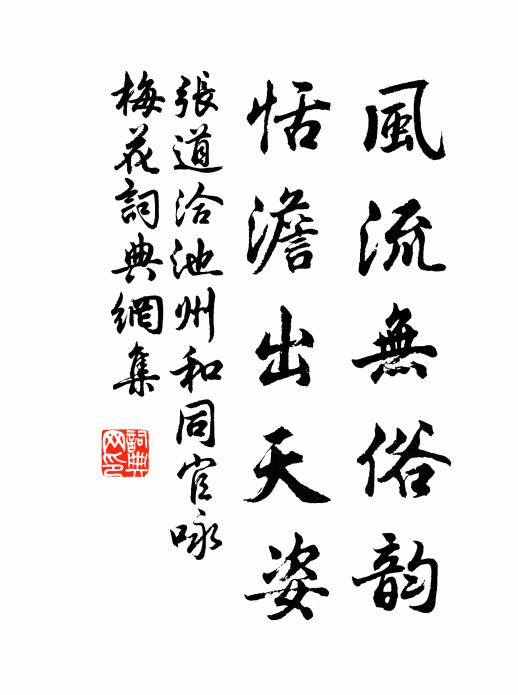 風流無俗韵
恬澹出天姿
張道洽池州和同官咏
梅花詞典網集
詞典
网印